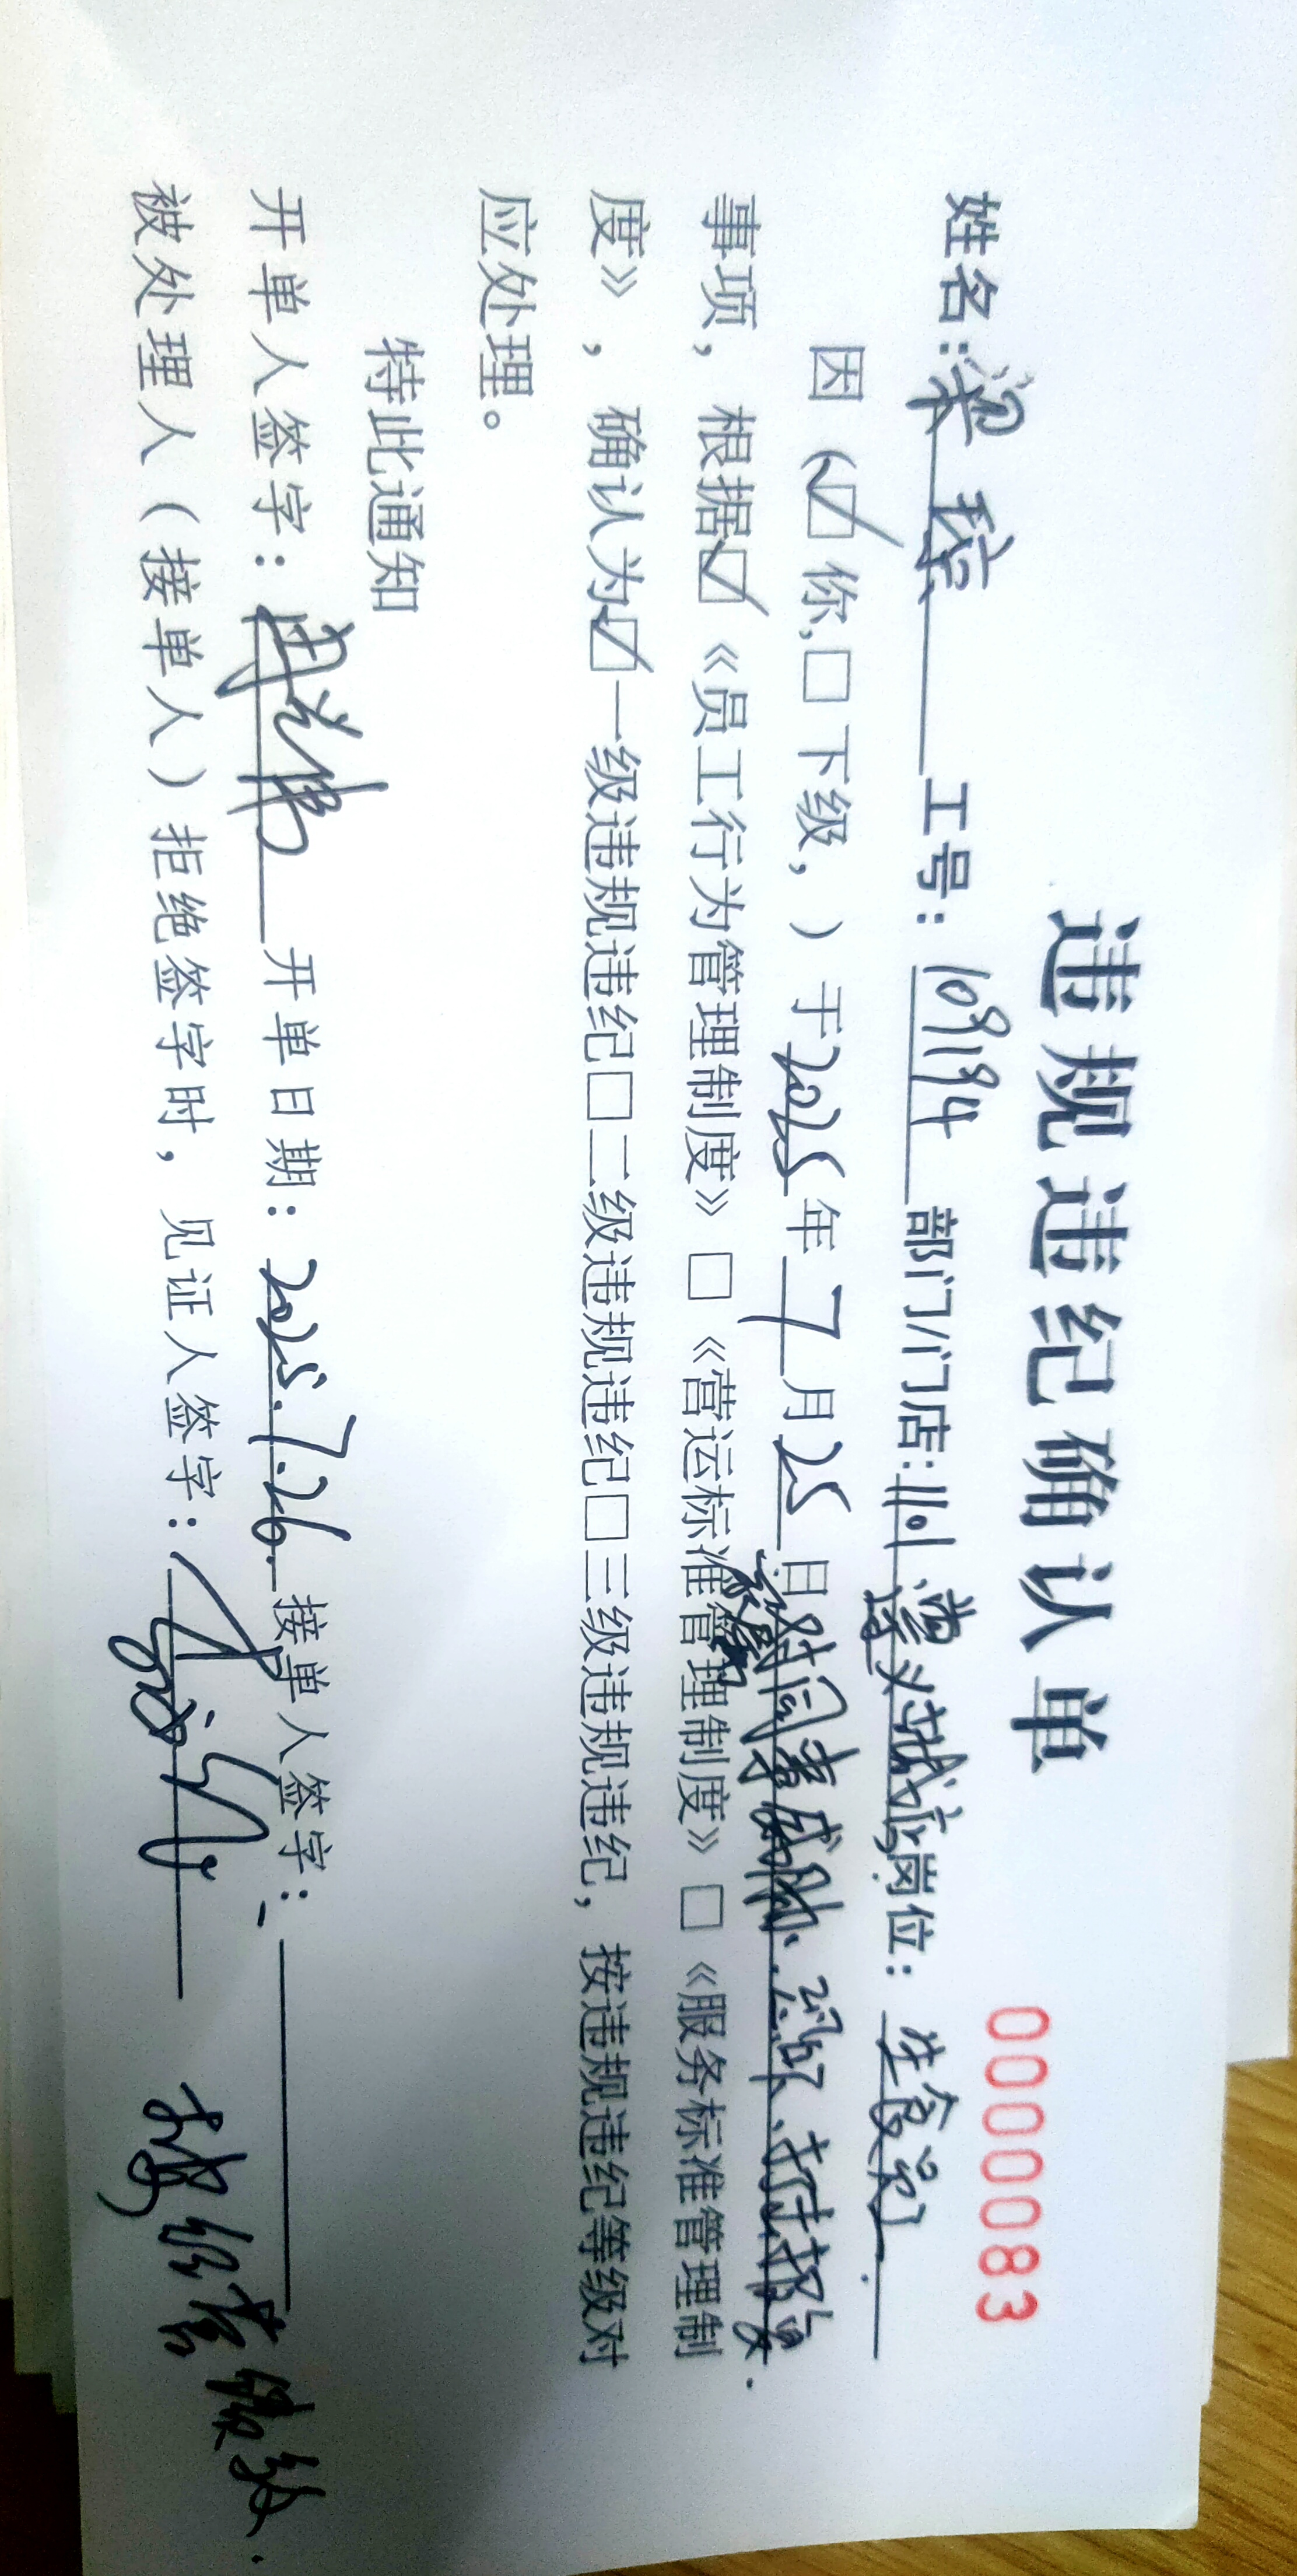 违规违纪确认单
00000083
姓名:梁琼 工号:109194 部门/门店:1101 岗位:生食员
因(☑你,□下级,)于2025年7月25日对同事威胁、恐吓、打击报复.
事项,根据☑《员工行为管理制度》□《营运标准管理制度》□《服务标准管理制
度》,确认为☑一级违规违纪□二级违规违纪□三级违规违纪,按违规违纪等级对
应处理。
特此通知
开单人签字: 开单日期:2025.7.26. 接单人签字:
被处理人(接单人)拒绝签字时,见证人签字: